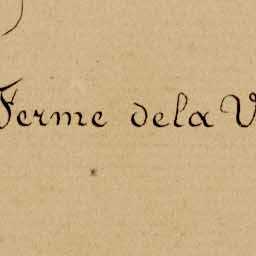 Ferme de la V